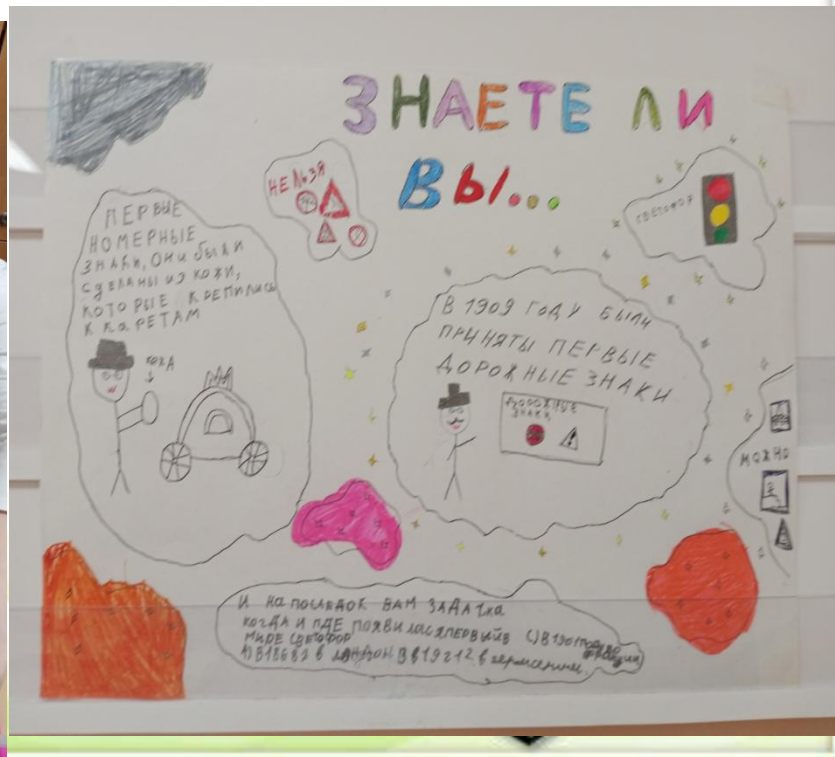 ЗНАЕТЕ ЛИ
ВЫ...
НЕЛЬЗЯ
СВЕТОФОР
ПЕРВЫЕ
НОМЕРНЫЕ
ЗНАКИ, ОНИ БЫЛИ
СДЕЛАНЫ ИЗ КОЖИ,
КОТОРЫЕ КРЕПИЛИСЬ
К КАРЕТАМ
КОЖА
В 1909 ГОДУ БЫЛИ
ПРИНЯТЫ ПЕРВЫЕ
ДОРОЖНЫЕ ЗНАКИ
ДОРОЖНЫЕ
ЗНАКИ
МОЖНО
И НА ПОСЛЕДОК ВАМ ЗАДАЧКА
КОГДА И ГДЕ ПОЯВИЛАСЯ ПЕРВЫЙ В
МИРЕ СВЕТОФОР
А) В 1868 В ЛОНДОН В В 1912 В